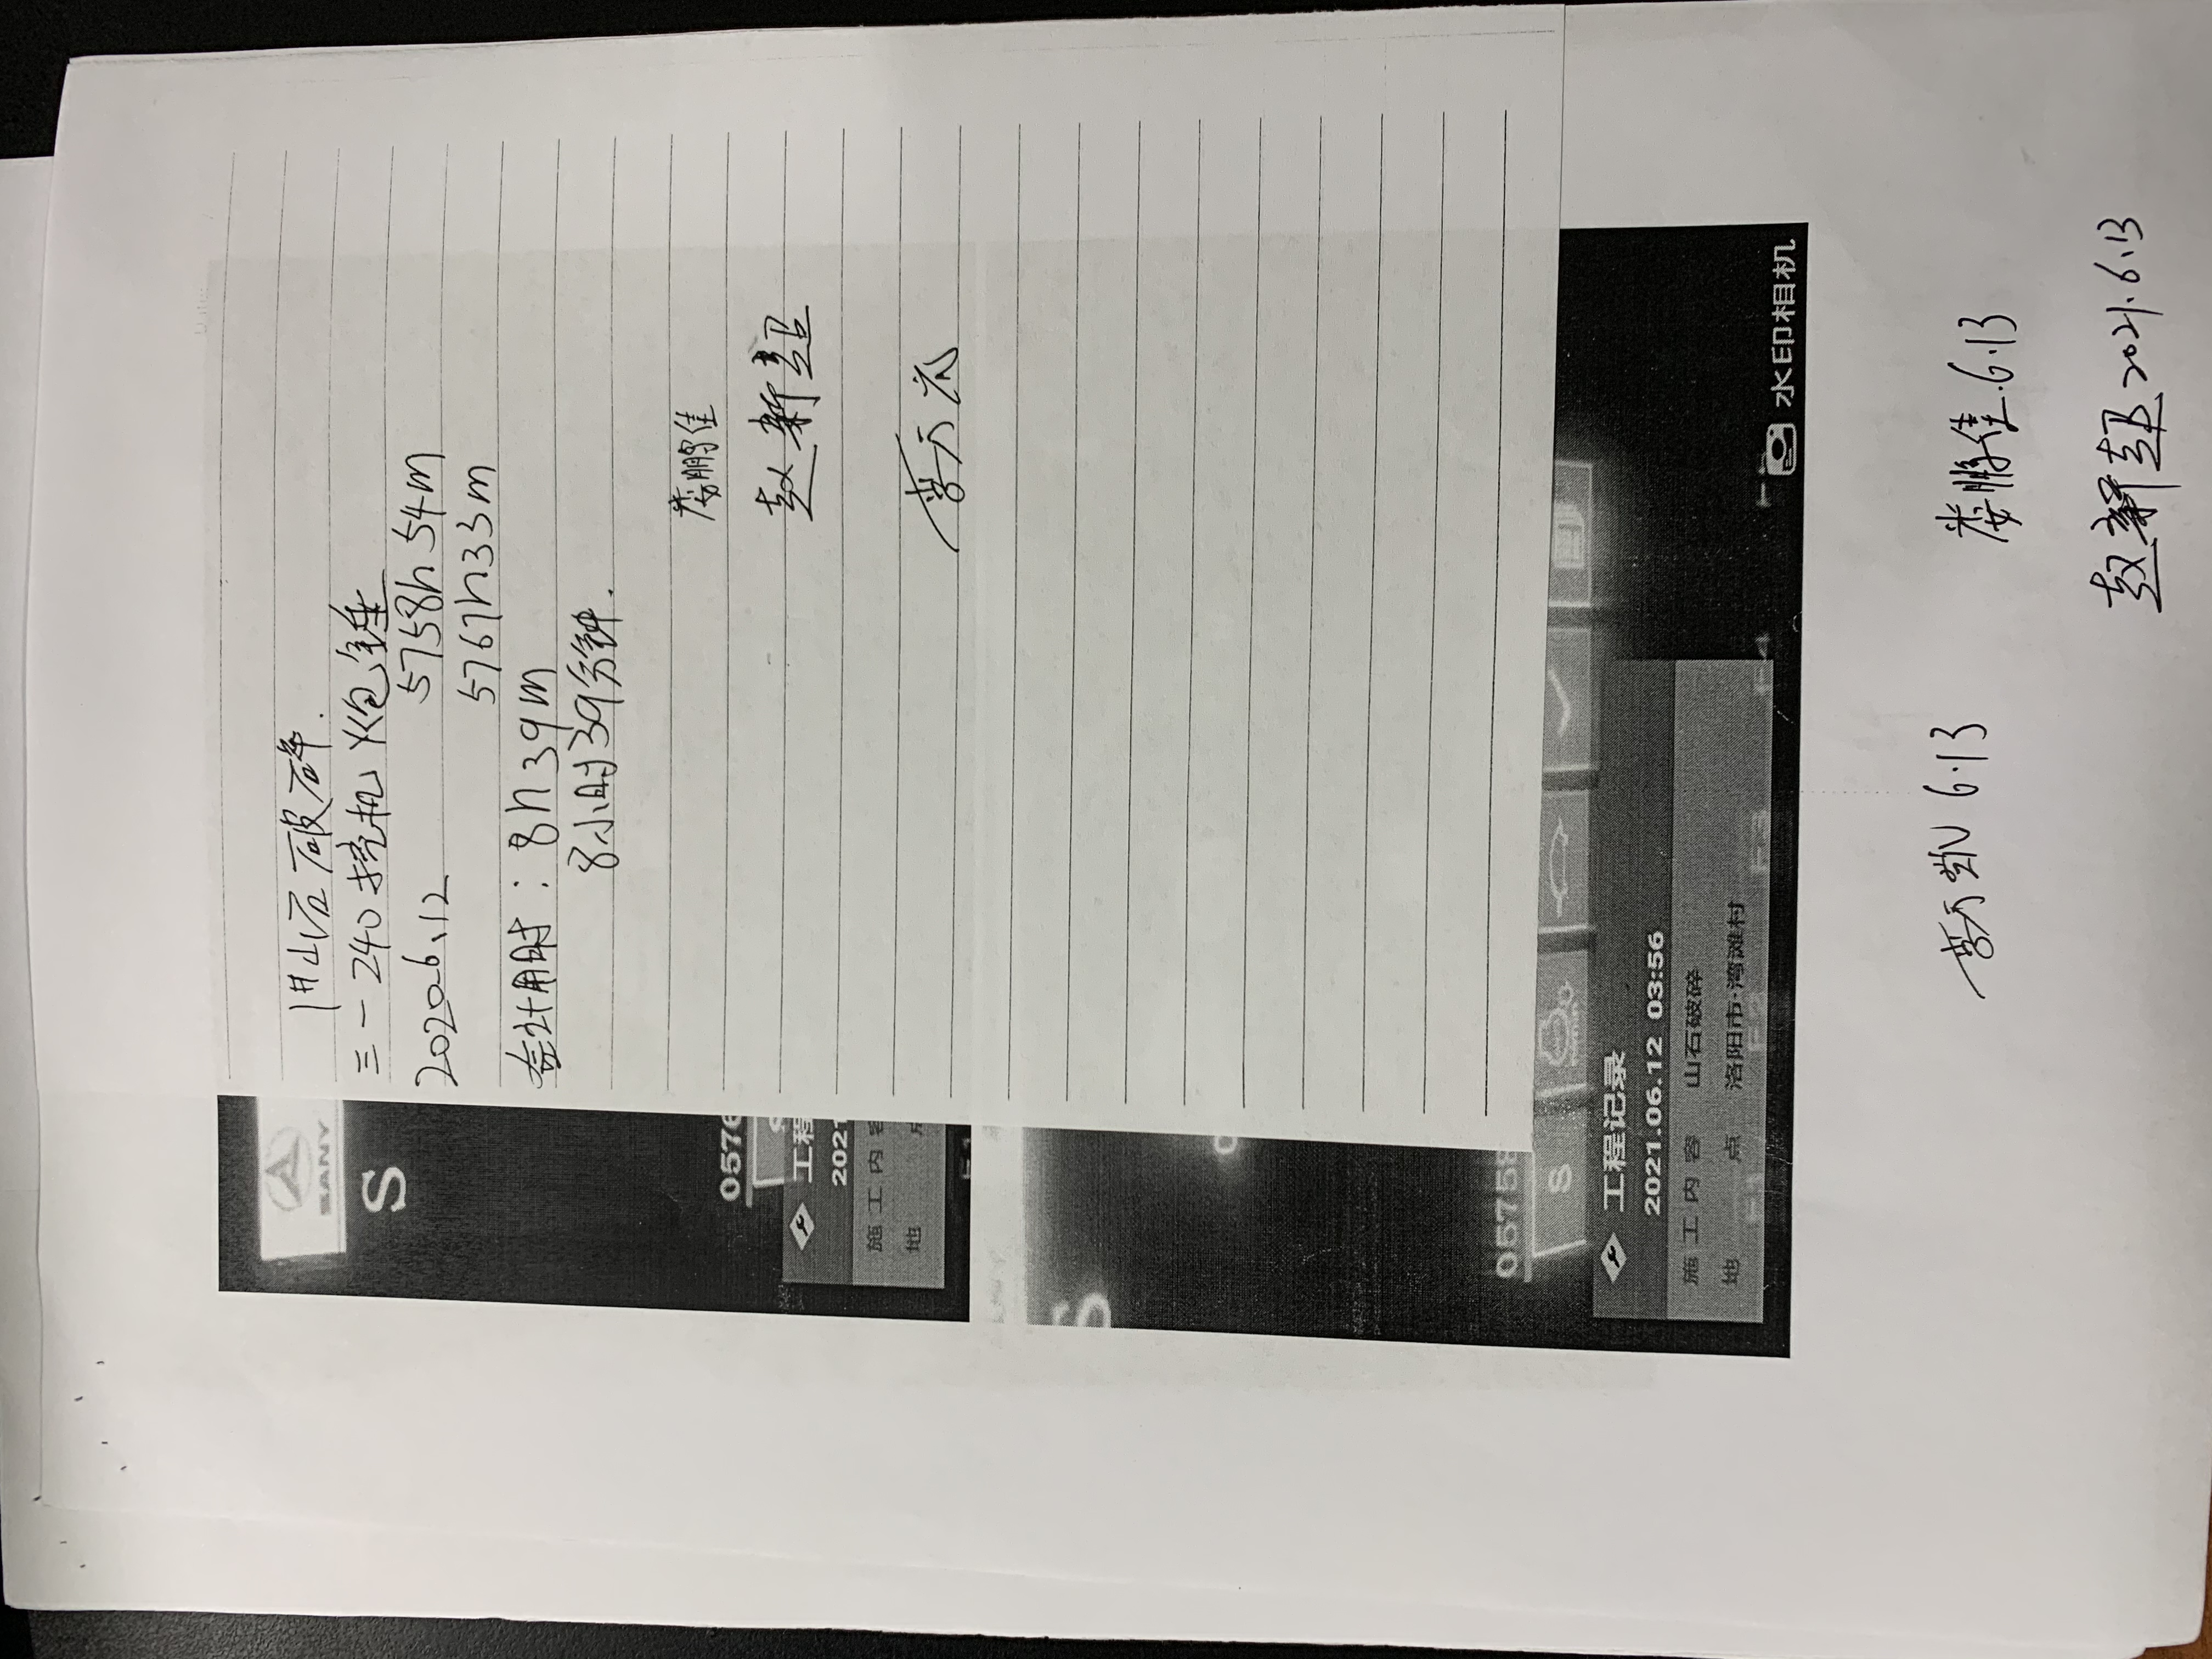 山石破碎.
三一240挖机 炮锤
2020.6.12 5758h54m
5767h33m
合计用时：8h39m
8小时39分钟.
娄鹏佳
赵新
SANY
S
0576
S
工程
2021
施工内容
地 点
S
05758
S
工程记录
2021.06.12 03:56
施工内容 山石破碎
地 点 洛阳市·湾滩村
水印相机
6.13
娄鹏佳 6.13
赵 2021.6.13